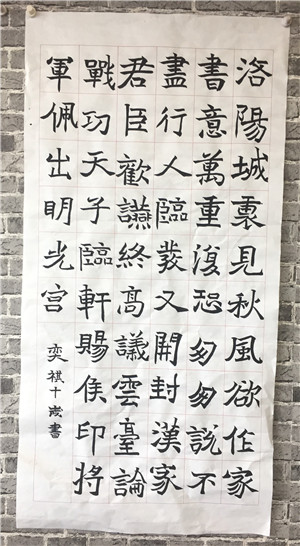 洛陽城裏見秋風欲作家
書意萬重復恐匆匆說不
盡行人臨發又開封漢家
君臣歡讌終高議雲臺論
戰功天子臨軒賜侯印將
軍佩出明光宮
奕祺十歲書